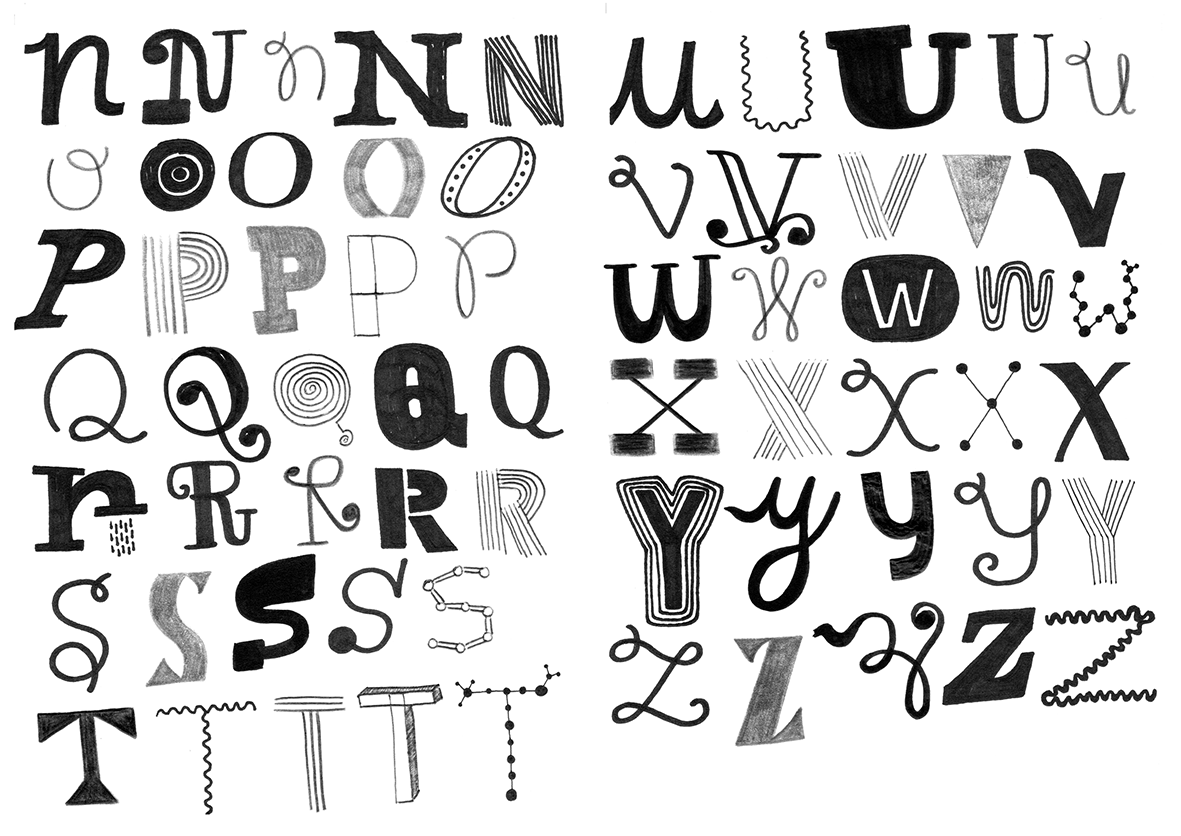 n N n N N
O O O O O
P P P P P
Q Q Q Q Q
r R R R R
S S S S S
T T T T T
u U U U u
v V V V v
w W W w w
X X X X X
Y y y y Y
Z Z Z Z Z